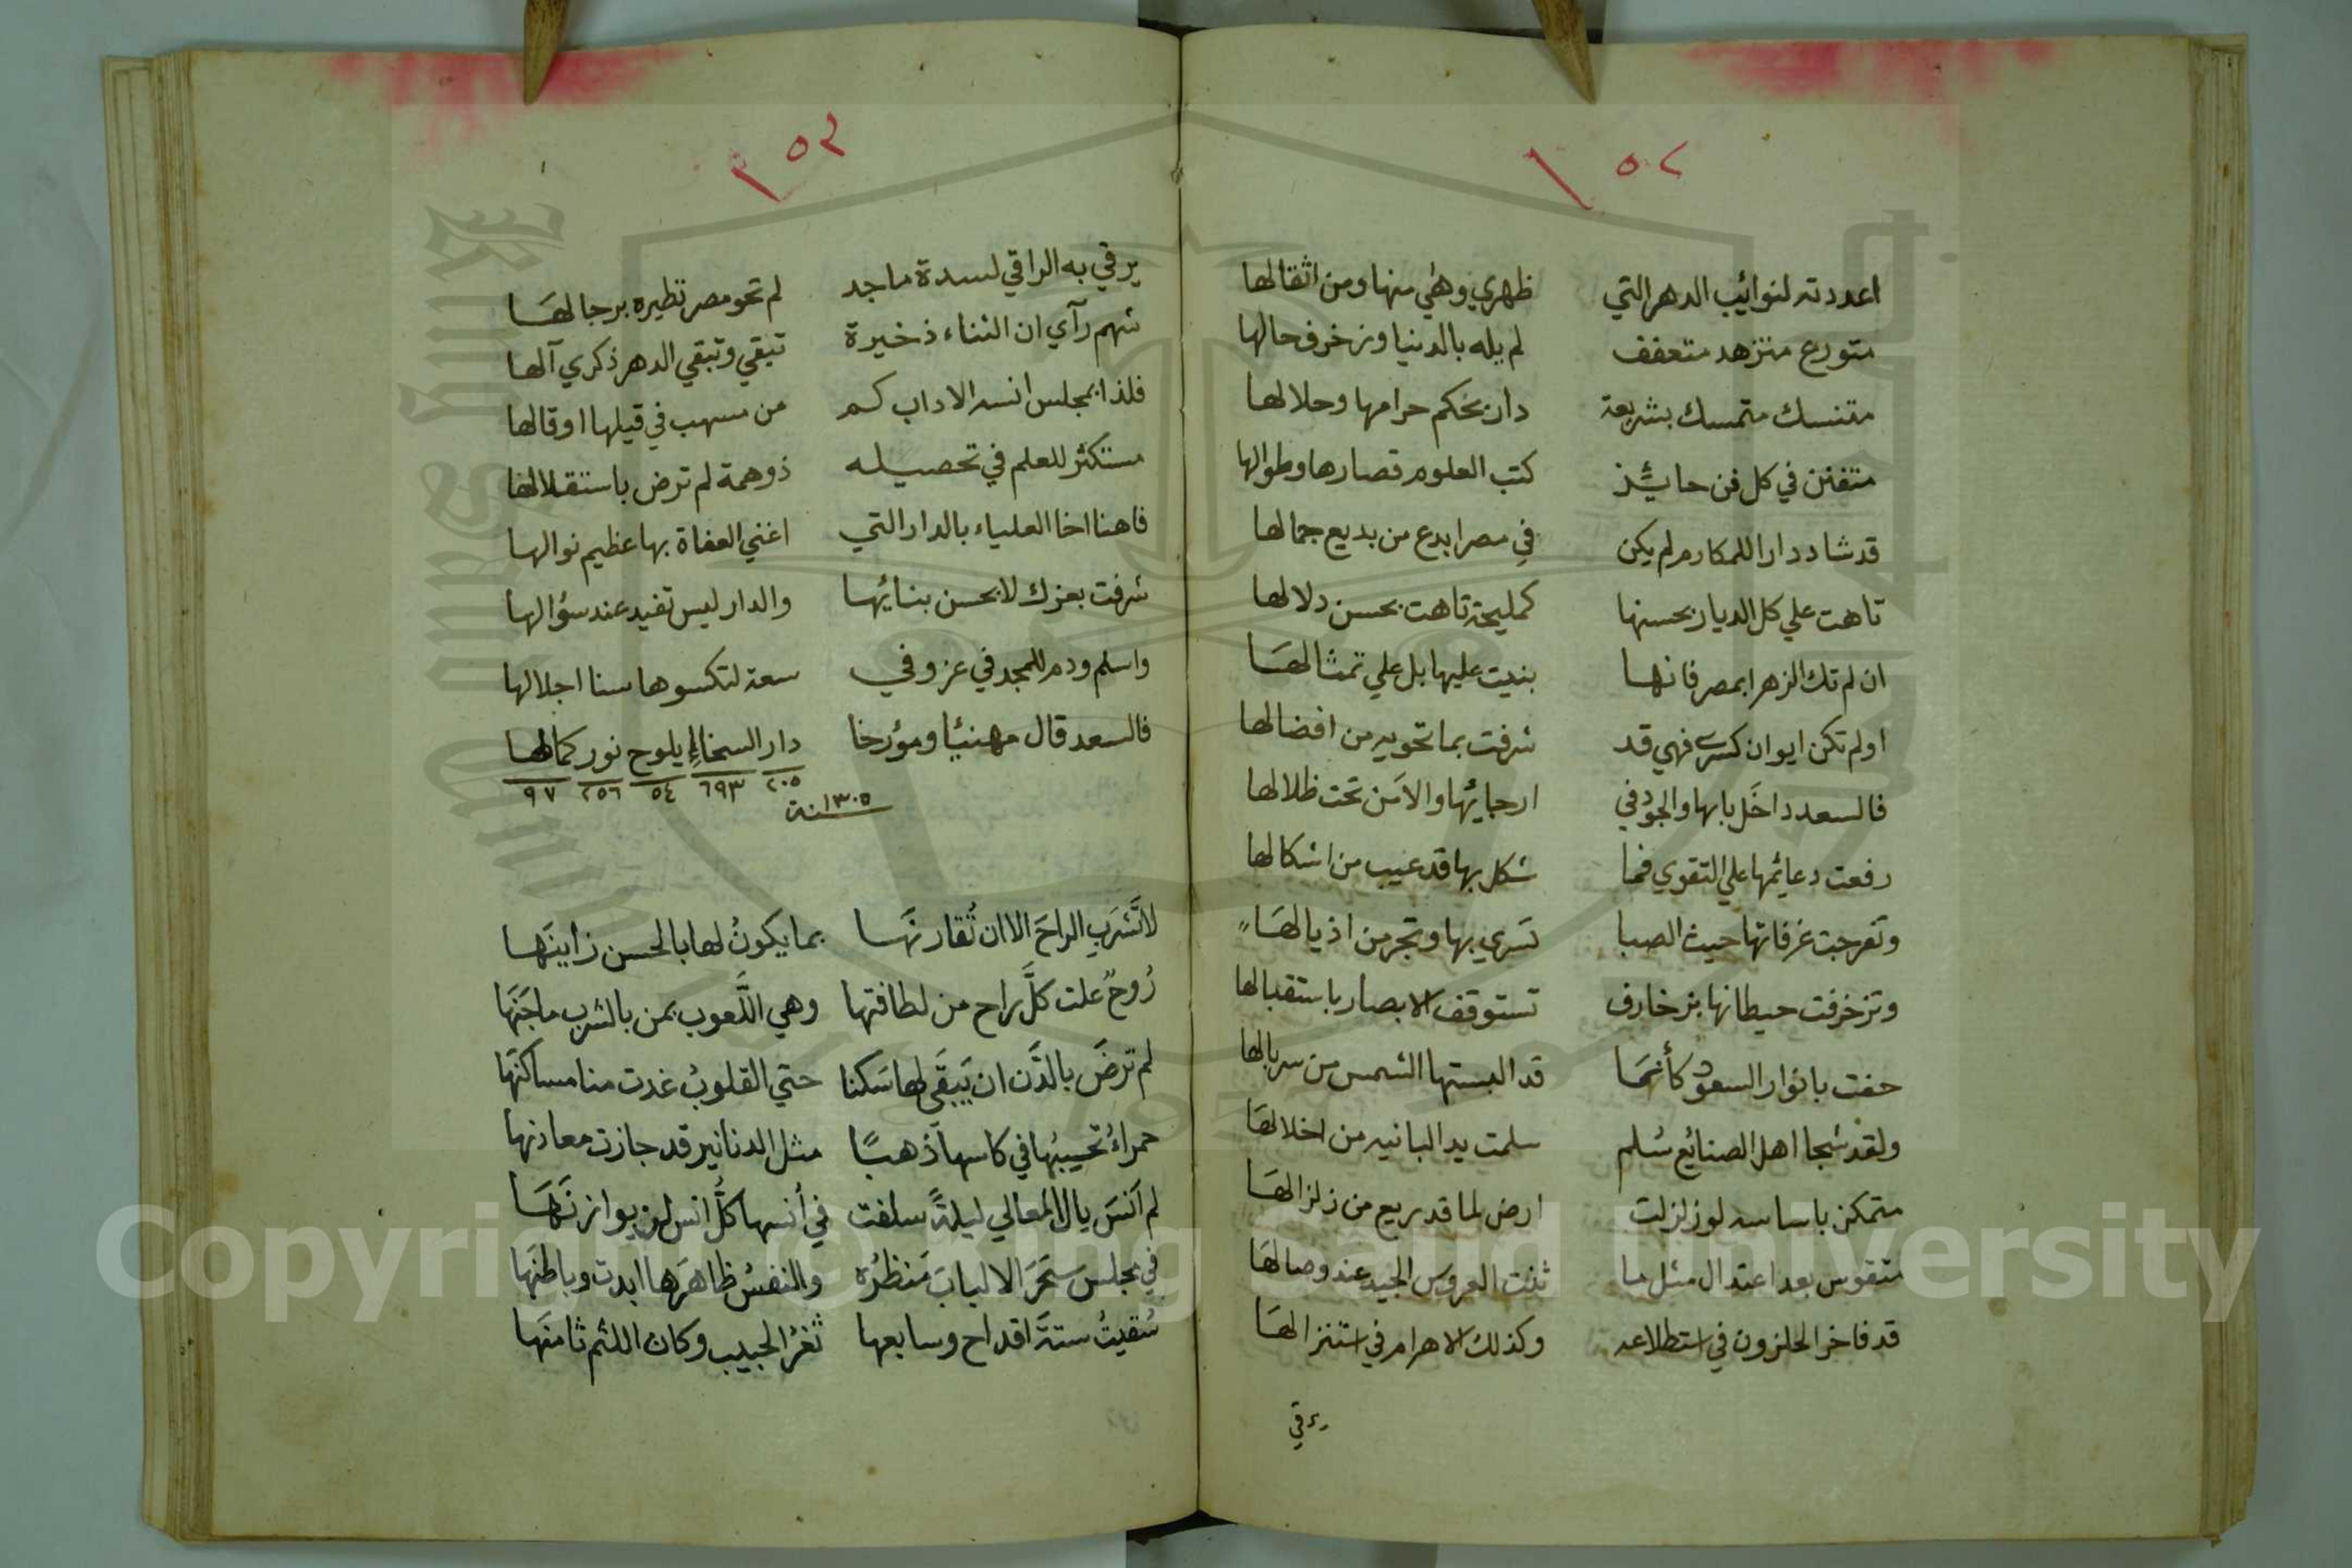 ٥٢
اعددته لنوائب الدهر التي ظهري وهي منها ومن اثقالها
متورع متزهد متعفف لم يله بالدنيا وزخرف حالها
متنسك متمسك بشريعة دار بحكم حرامها وحلالها
متفنن في كل فن حائز كتب العلوم قصارها وطوالها
قد شاد دارا للمكارم لم يكن في مصر ابدع من بديع جمالها
تاهت علي كل الديار بحسنها كمليحة تاهت بحسن دلالها
ان لم تك الزهرا بمصر فانها بنيت عليها بل علي تمثالها
اولم تكن ايوان كسري فهي قد شرفت بما تحويه من افضالها
فالسعد داخل بابها والجود في ارجايها والامن تحت ظلالها
رفعت دعايمها علي التقوي فما شكل بها قد عيب من اشكالها
وتعرجت غرفاتها حيث الصبا تسري بها وتجر من اذيالها
وتزخرفت حيطانها بزخارف تستوقف الابصار باستقبالها
حفت بانوار السعود كأنما قد البستها الشمس من سربالها
ولقد شجا اهل الصنايع سُلم سلمت يد البانيه من اخلالها
متمكن باساسه لو زلزلت ارض لما قد ريع من زلزالها
متقوس بعد اعتدال مثل ما ثنت العروس الجيد عند وصالها
قد فاخر الحلزون في استطلاعه وكذلك الاهرام في استنزالها
يرقي
٥٣
يرقي به الراقي لسدة ماجد لم تحو مصر نظيره برجالها
شهم رآي ان الثناء ذخيرة تبقي وتبقي الدهر ذكري آلها
فلذا بمجلس انسه الاداب كم من مسهب في قيلها او قالها
مستكثر للعلم في تحصيله ذو همة لم ترض باستقلالها
فاهنا اخا العلياء بالدار التي اغني العفاة بها عظيم نوالها
شرفت بعزك لا بحسن بنائها والدار ليس تفيد عند سؤالها
واسلم ودم للمجد في عز وفي سعة لتكسوها سنا اجلالها
فالسعد قال مهنيًا ومؤرخا دار السخاء يلوح نور كمالها
٢٠٥ ٦٩٣ ٥٤ ٢٥٦ ٩٧
سنة ١٣٠٥
لا تَشرَبِ الراحَ الا ان تُقارنَها بما يكونُ لها بالحسن زاينَها
رُوحٌ علت كلَّ راح من لطافتها وهي اللَّعوب بمن بالشرب ماجَنَها
لم ترضَ بالدَّن ان يَبقَى لها سَكنا حتي القلوبُ غدت منا مساكنَها
حمراءُ تحسِبُها في كاسها ذهبًا مثل الدنانير قد جازت معادنها
لم اَنسَ يال المعالي ليلةً سلفت في أنسها كلُّ انس لم يوازنَها
في مجلس سَحَرَ الالبابَ مَنظرُه والنفسُ ظاهرَها ابدت وباطنَها
سُقيتُ ستةَ اقداح وسابعها ثغرُ الحبيب وكان اللثم ثامنَها
Copyright © King Saud University